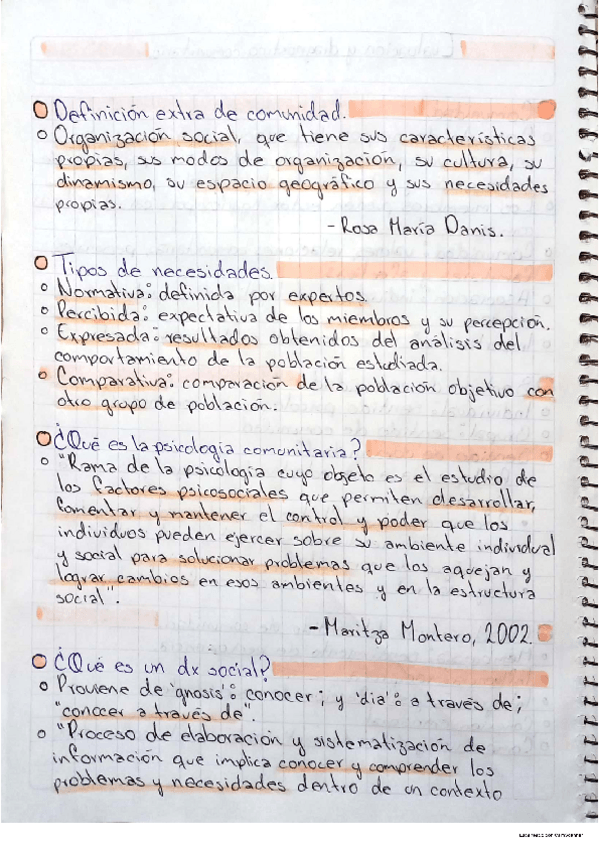 Definición extra de comunidad.
Organización social, que tiene sus características
propias, sus modos de organización, su cultura, su
dinamismo, su espacio geográfico y sus necesidades
propias.
- Rosa María Danis.
Tipos de necesidades.
Normativa: definida por expertos.
Percibida: expectativa de los miembros y su percepción.
Expresada: resultados obtenidos del análisis del
comportamiento de la población estudiada.
Comparativa: comparación de la población objetivo con
otro grupo de población.
¿Qué es la psicologia comunitaria?
"Rama de la psicologia cuyo objeto es el estudio de
los factores psicosociales que permiten desarrollar,
fomentar y mantener el control y poder que los
individuos pueden ejercer sobre su ambiente individual
y social para solucionar problemas que los aquejan y
lograr cambios en esos ambientes y en la estructura
social".
- Maritza Montero, 2002.
¿Qué es un dx social?
Proviene de 'gnosis': conocer; y 'dia': a través de;
"conocer a través de".
"Proceso de elaboración y sistematización de
información que implica conocer y comprender los
problemas y necesidades dentro de un contexto